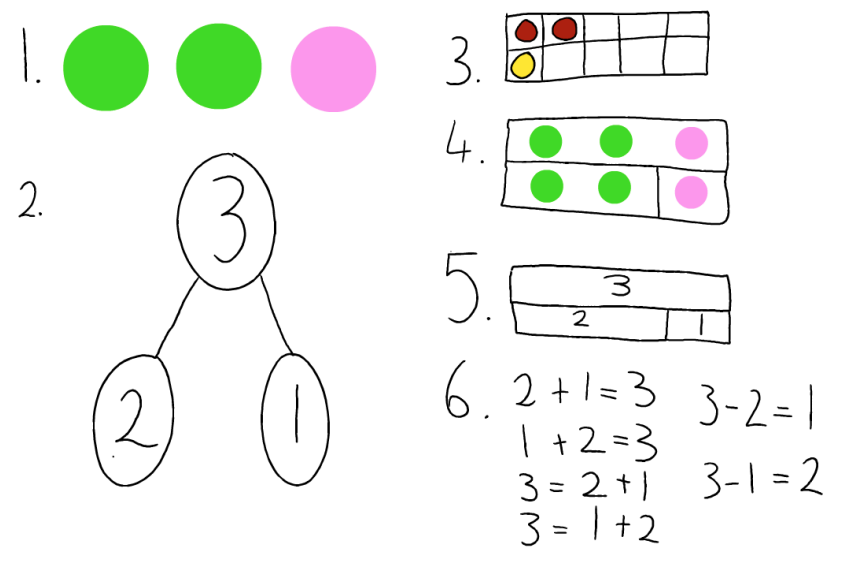 1.
2.
3
2
1
3.
4.
5.
3
2
1
6.
2+1=3
1+2=3
3=2+1
3=1+2
3-2=1
3-1=2